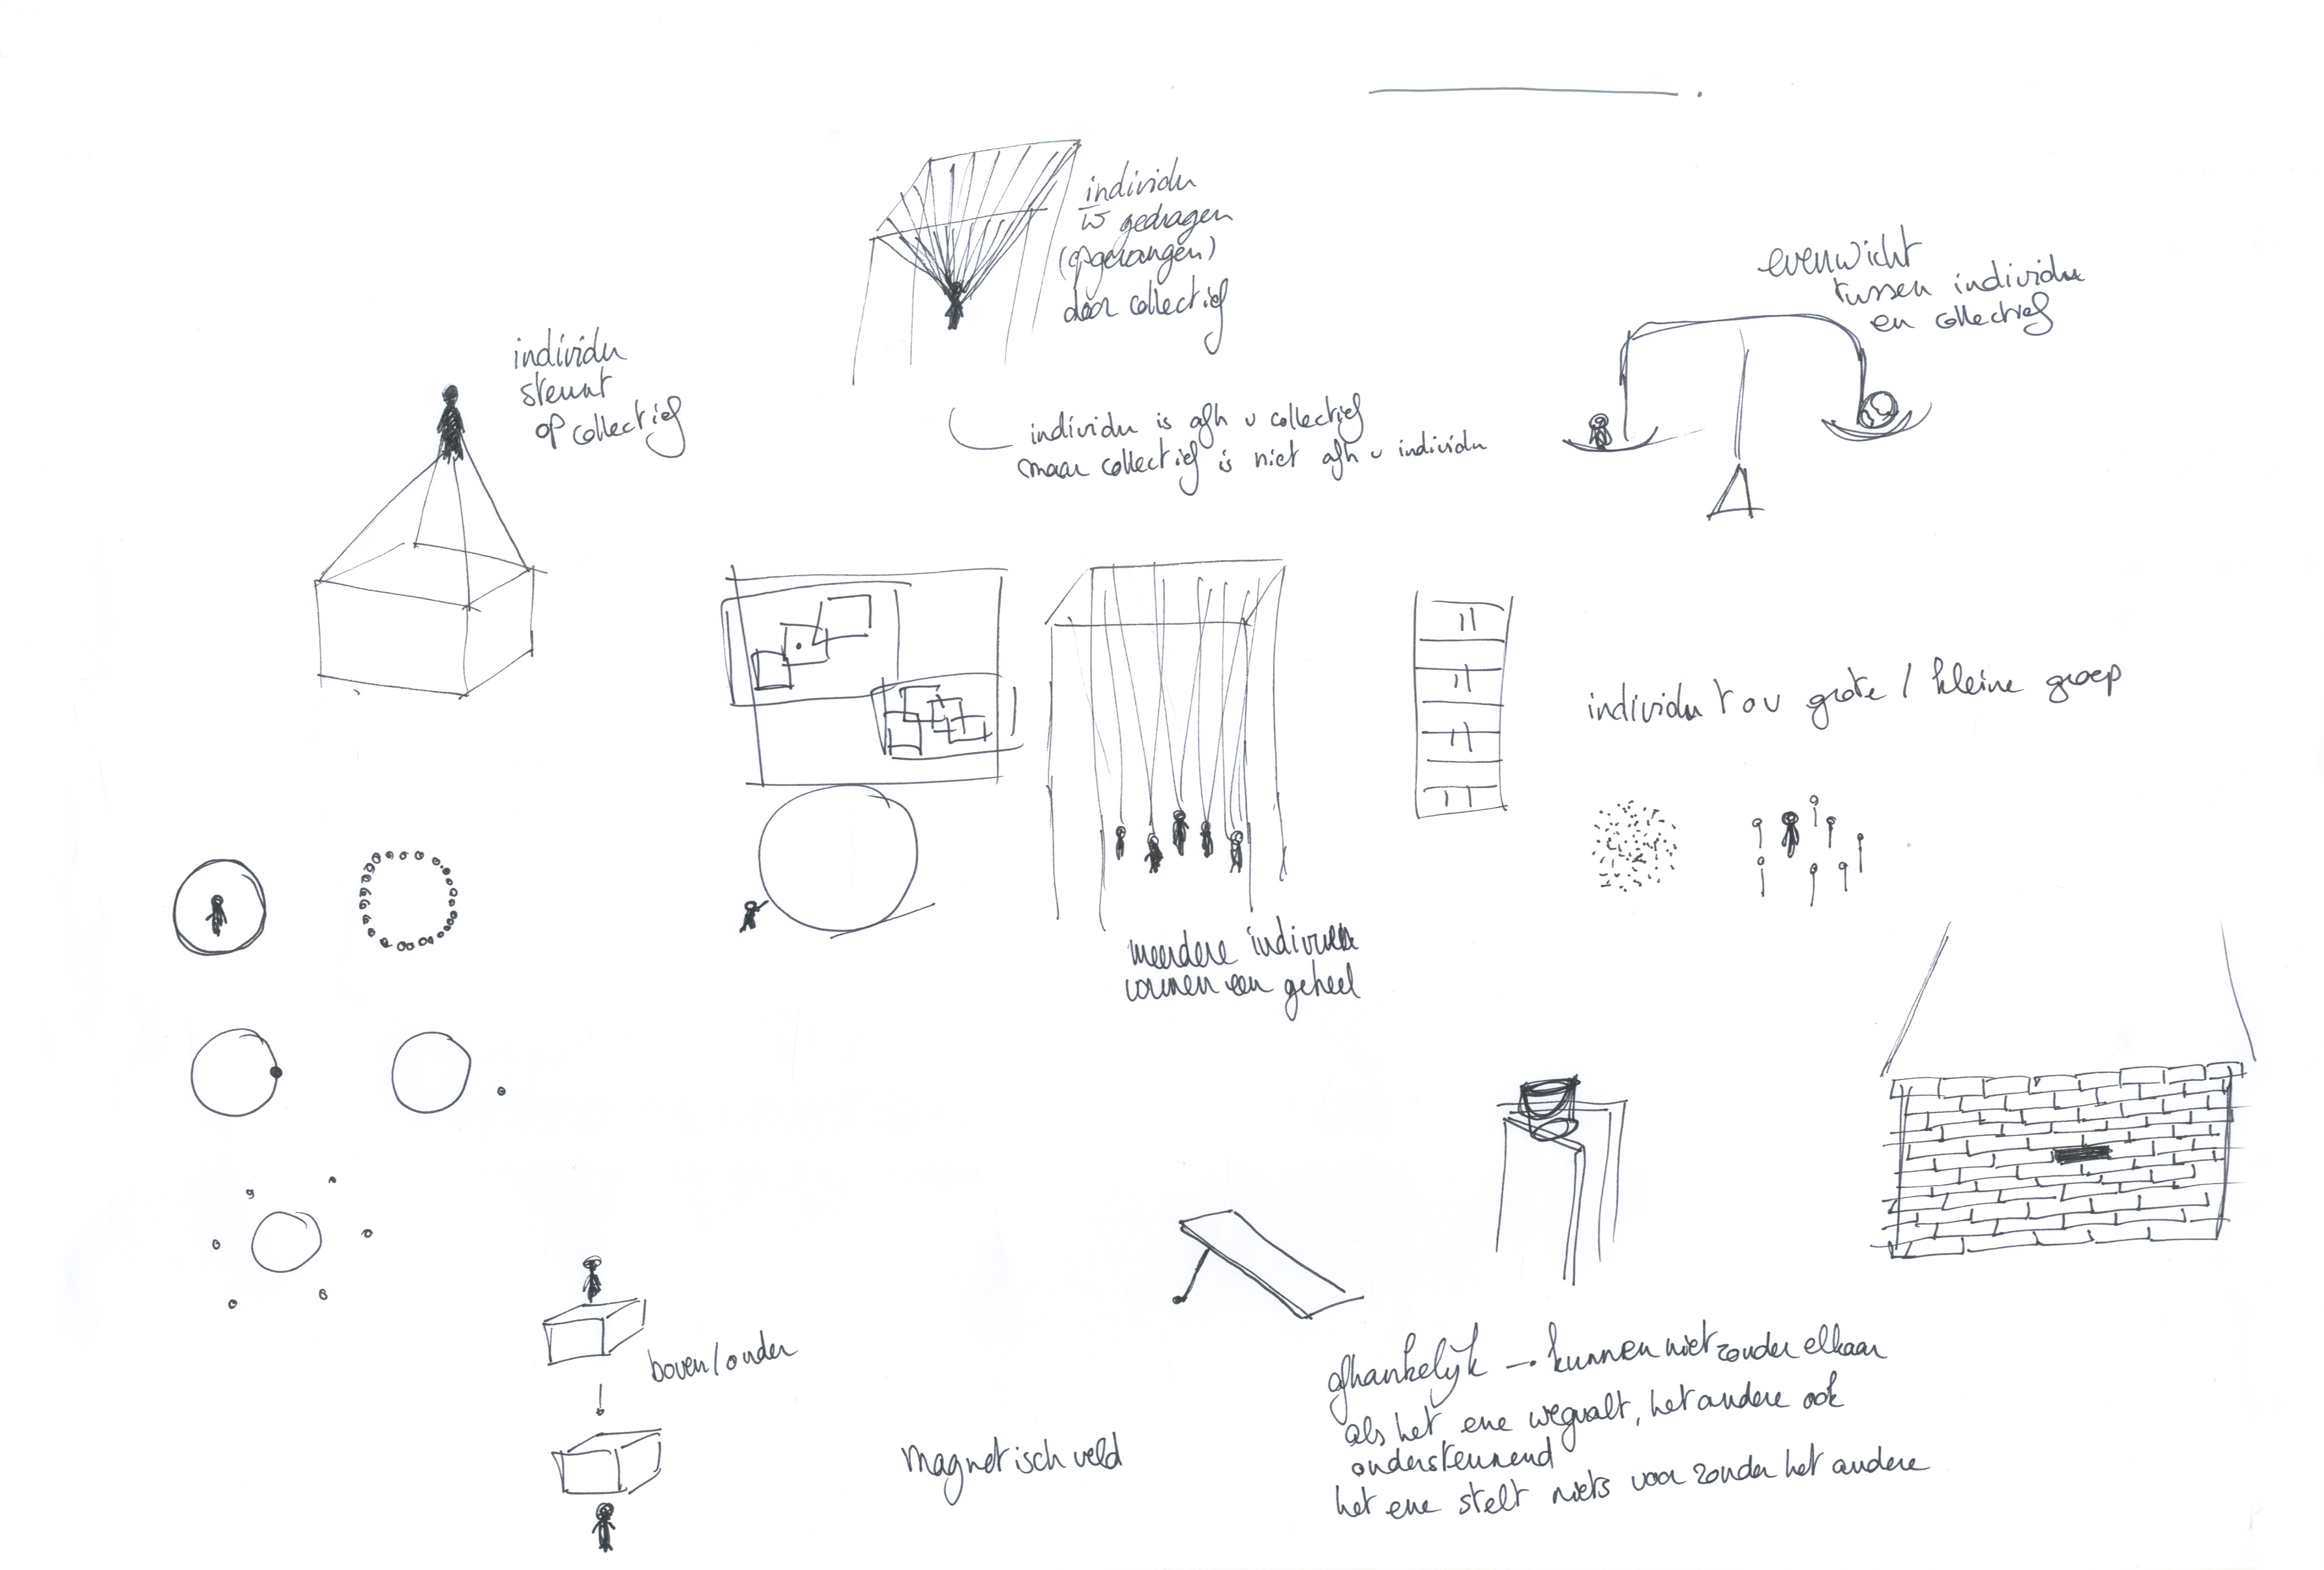 individu
w gedragen
(opgevangen)
door collectief
evenwicht
tussen individu
en collectief
individu
steunt
op collectief
individu is afh v collectief
maar collectief is niet afh v individu
individu tov grote / kleine groep
meerdere
vormen een geheel
boven/onder
magnetisch veld
afhankelijk → kunnen niet zonder elkaar
als het ene wegvalt, het andere ook
ondersteunend
het ene stelt niets voor zonder het andere